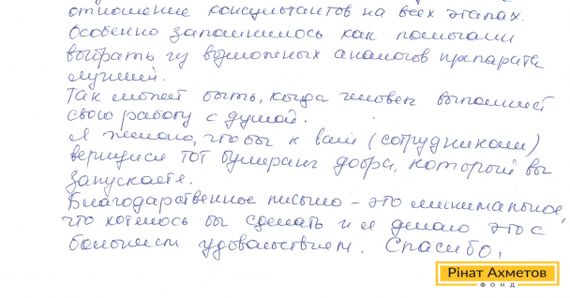 отношение консультантов на всех этапах.
Особенно запомнилось как помогали
выбрать из возможных аналогов препарата
лучший.
Так может быть, когда человек выполняет
свою работу с душой.
Я желаю, чтобы к вам (сотрудникам)
вернулся тот бумеранг добра, который вы
запускаете.
Благодарственное письмо - это минимальное,
что хотелось бы сделать и я делаю это с
большим удовольствием. Спасибо,
Рінат Ахметов
ФОНД